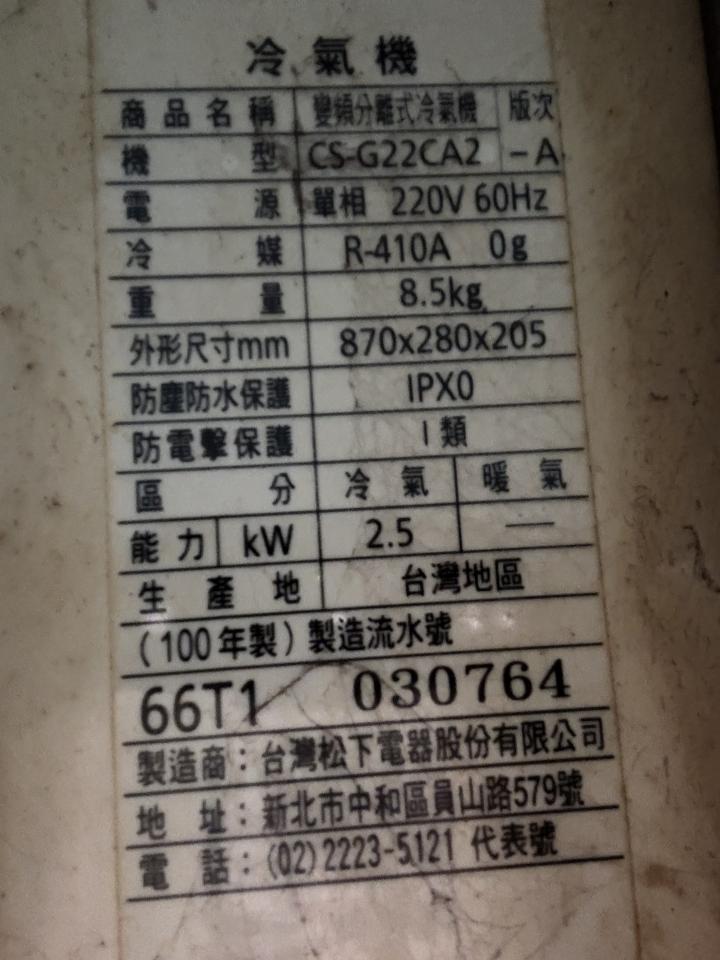 冷氣機
商品名稱 變頻分離式冷氣機 版次
機型 CS-G22CA2 -A
電源 單相 220V 60Hz
冷媒 R-410A 0g
重量 8.5kg
外形尺寸mm 870x280x205
防塵防水保護 IPX0
防電擊保護 I 類
區分 冷氣 暖氣
能力 kW 2.5 —
生產地 台灣地區
(100年製)製造流水號
66T1 030764
製造商:台灣松下電器股份有限公司
地址:新北市中和區員山路579號
電話:(02)2223-5121 代表號